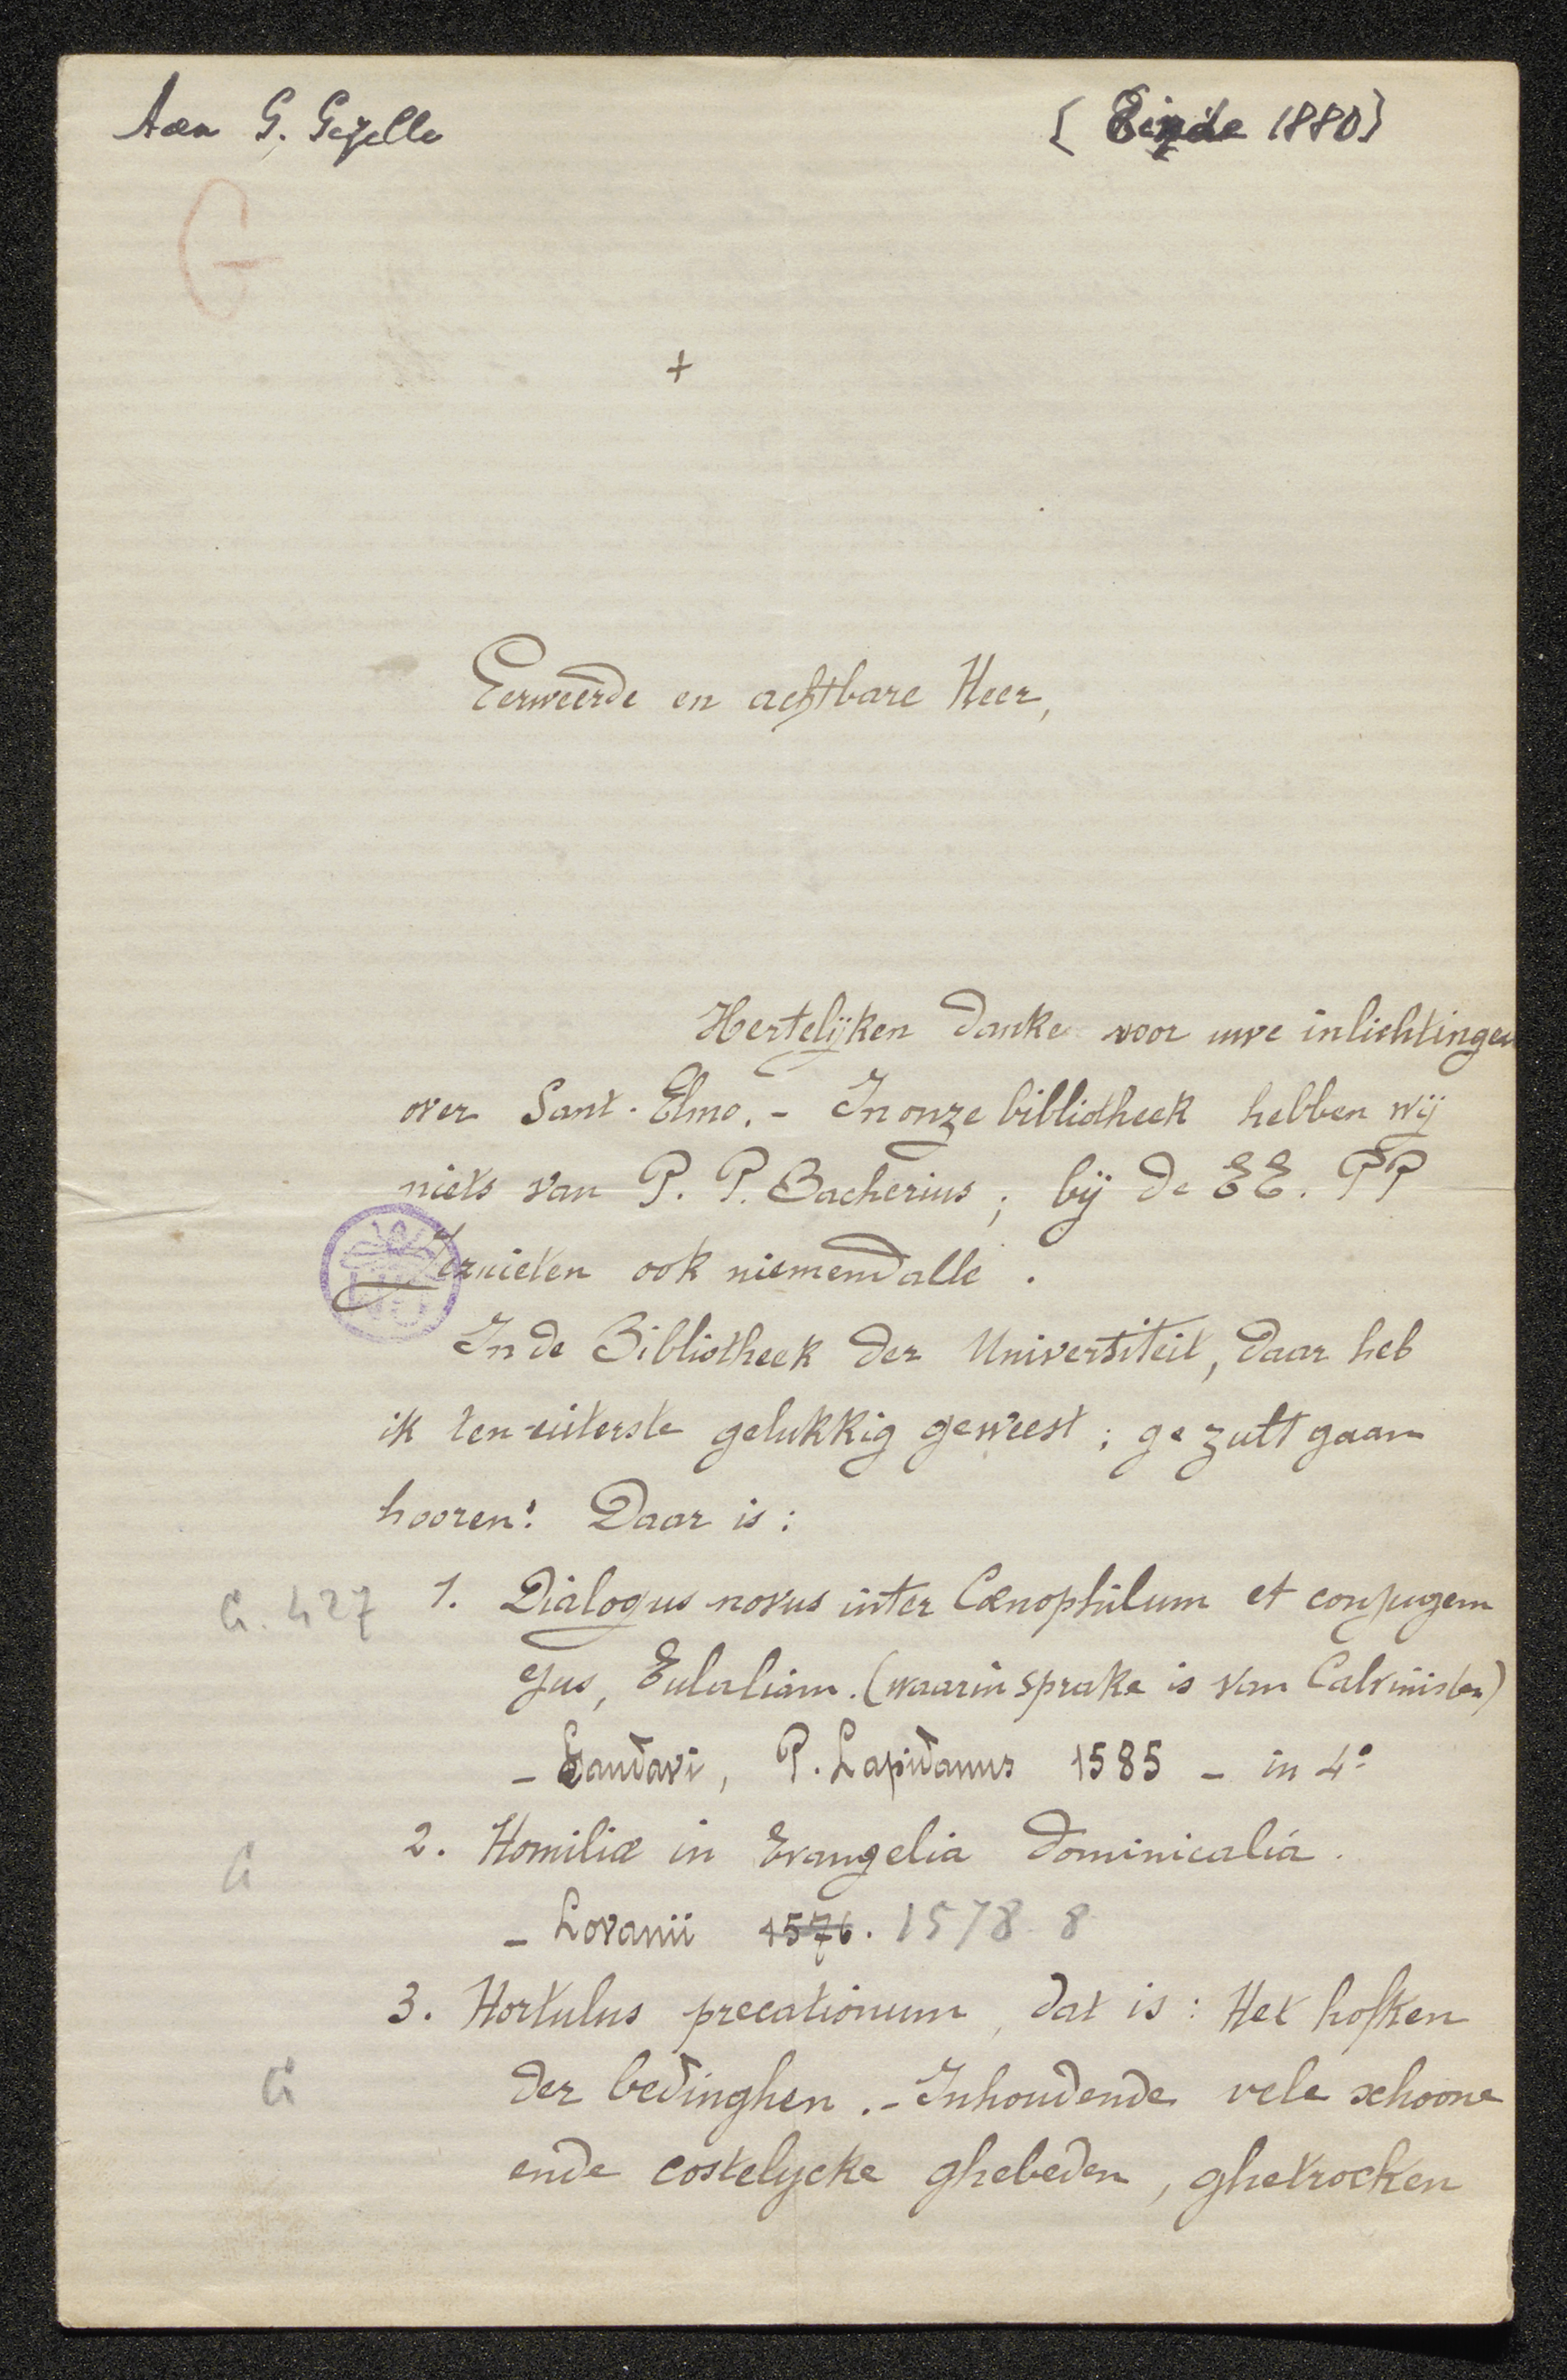 Aan G. Gezelle
[Einde 1880]
G
+
Eerweerde en achtbare Heer,
Hertelijken danke voor uwe inlichtingen
over Sant-Elmo. - In onze bibliotheek hebben wij
niets van P. P. Bacherius; bij de EE. PP
Jezuieten ook niemendalle.
In de Bibliotheek der Universiteit, daar heb
ik ten-uiterste gelukkig geweest; ge zult gaan
hooren! Daar is:
G. 427 1. Dialogus novus inter Cœnophilum et conjugem
ejus, Eulaliam. (waarin sprake is van Calvinisten)
- Gandavi, P. Lapidanus 1585 - in 4°
G 2. Homiliæ in Evangelia dominicalia.
- Lovanii 1576. 1578 8
3. Hortulus precationum, dat is: Het hofken
G der bedinghen. - Inhoudende vele schoone
ende costelycke ghebeden, ghetrocken